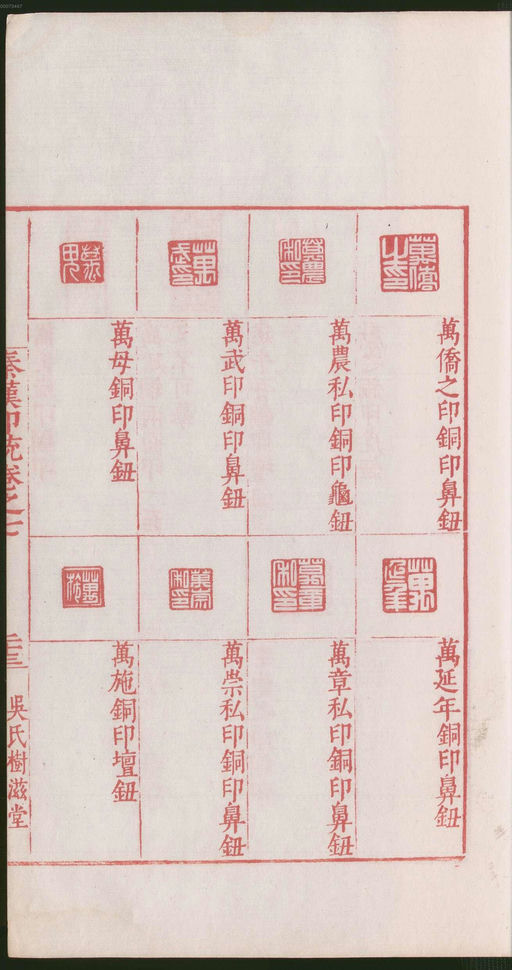 00073467
萬僑之印銅印鼻鈕
萬農私印銅印龜鈕
萬武印銅印鼻鈕
萬母銅印鼻鈕
萬延年銅印鼻鈕
萬章私印銅印鼻鈕
萬崇私印銅印鼻鈕
萬施銅印壇鈕
秦漢印統卷之七
吳氏樹滋堂